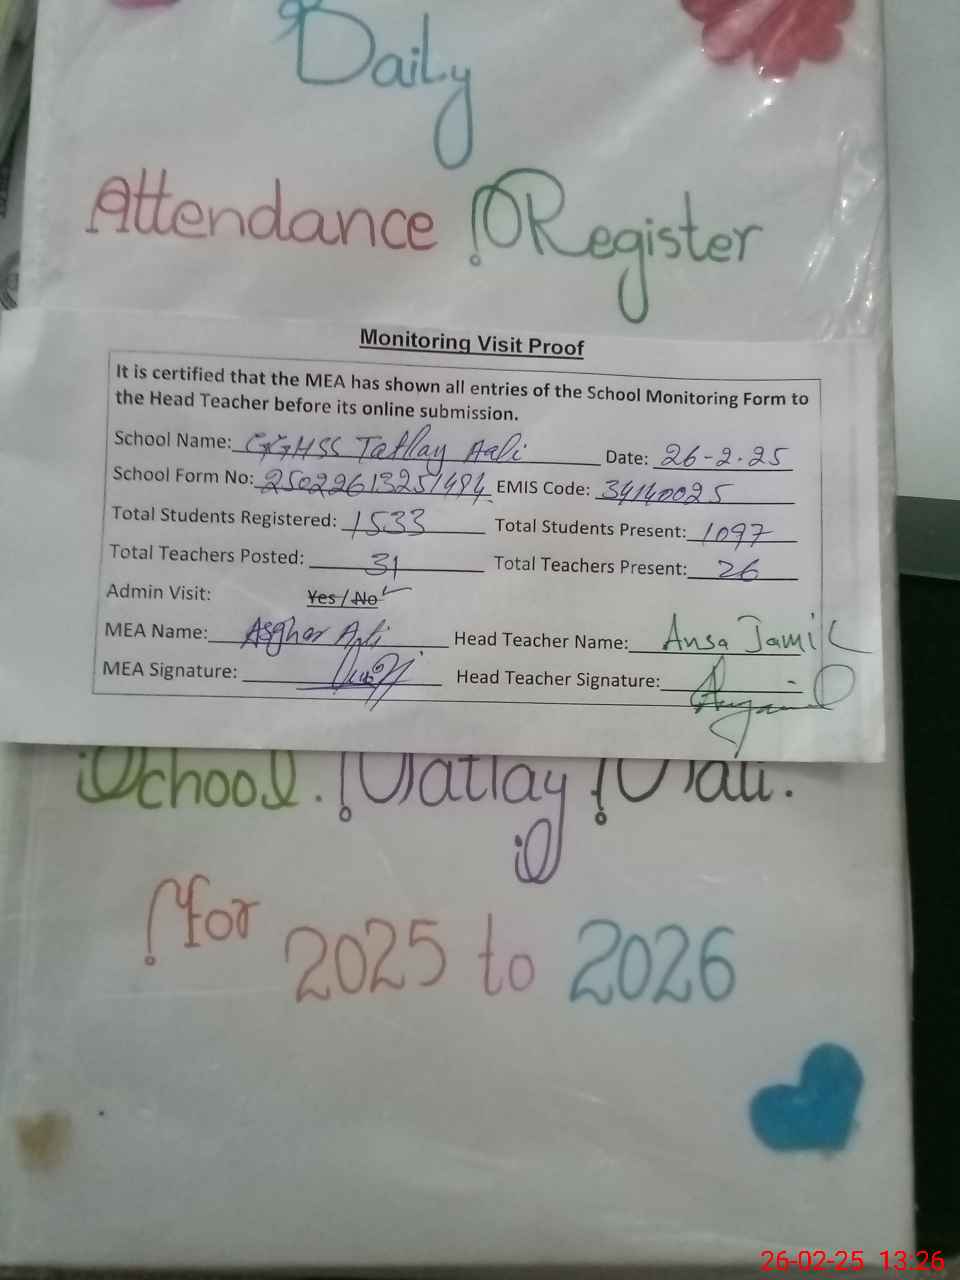 Daily
Attendance Register
Monitoring Visit Proof
It is certified that the MEA has shown all entries of the School Monitoring Form to
the Head Teacher before its online submission.
School Name: GGHSS Tatlay Aali Date: 26-2-25
School Form No: 25022613251494 EMIS Code: 34140025
Total Students Registered: 1533 Total Students Present: 1097
Total Teachers Posted: 31 Total Teachers Present: 26
Admin Visit: Yes / No
MEA Name: Asghar Ali Head Teacher Name: Ansa Jamil
MEA Signature: Head Teacher Signature:
School. Tatlay Aali.
for 2025 to 2026
26-02-25 13:26